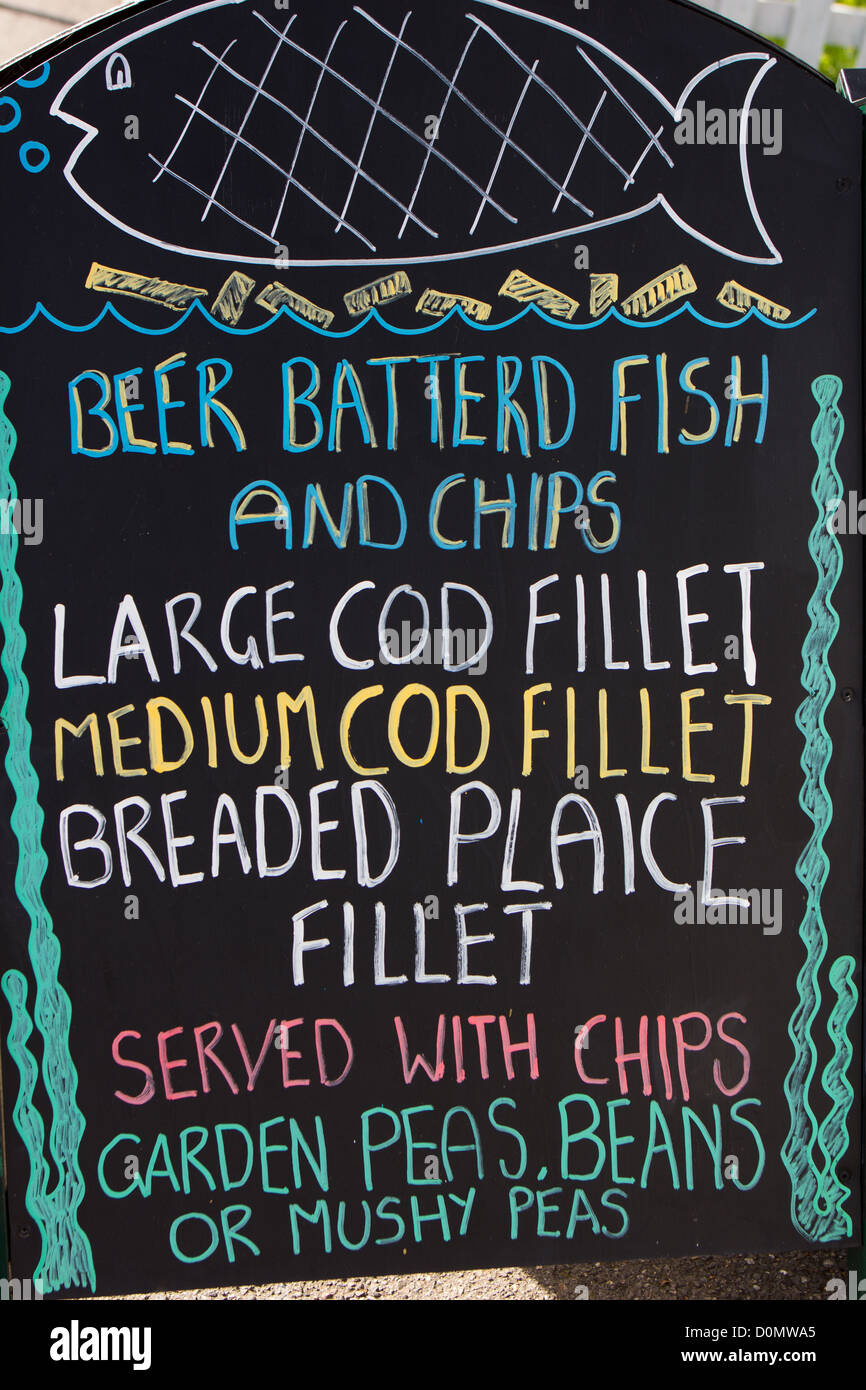 BEER BATTERD FISH
AND CHIPS
LARGE COD FILLET
MEDIUM COD FILLET
BREADED PLAICE
FILLET
SERVED WITH CHIPS
GARDEN PEAS, BEANS
OR MUSHY PEAS
alamy stock photo
D0MWA5
www.alamy.com